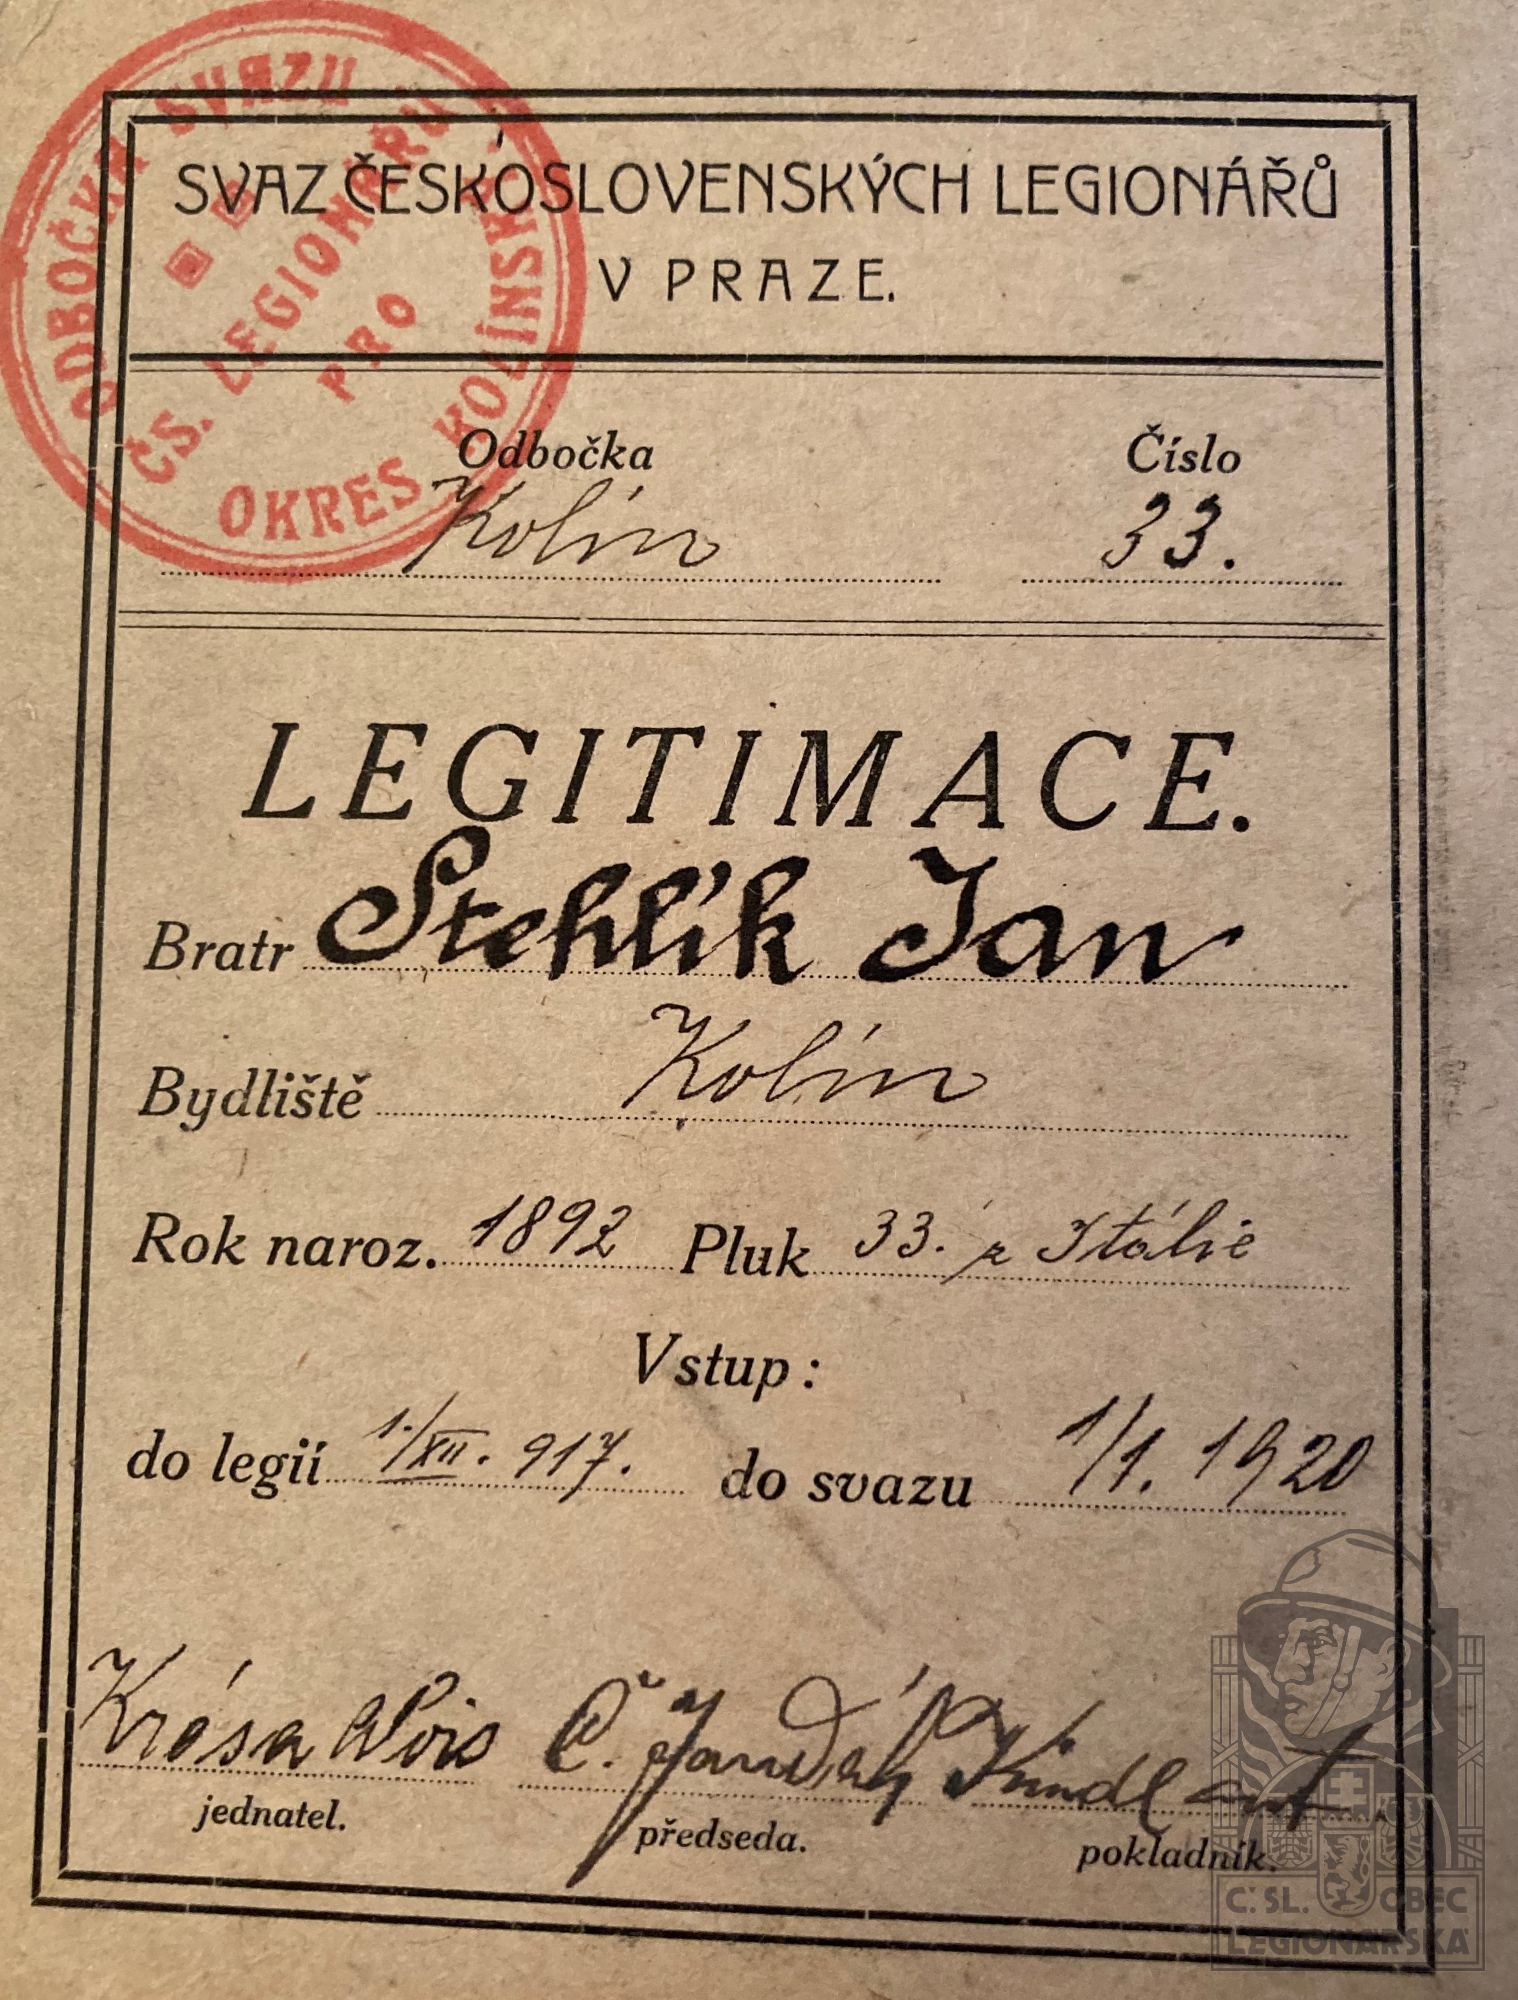 ODBOČKA SVAZU
ČS. LEGIONÁŘŮ
PRO
OKRES KOLÍNSKÝ
SVAZ ČESKOSLOVENSKÝCH LEGIONÁŘŮ
V PRAZE.
Odbočka Číslo
Kolín 33.
LEGITIMACE.
Bratr Stehlík Jan
Bydliště Kolín
Rok naroz. 1892 Pluk 33. z Itálie
Vstup:
do legií 1./XII. 917. do svazu 1/1. 1920
Krása Alois Č.
jednatel. předseda. pokladník.
Č. SL. OBEC
LEGIONÁŘSKÁ